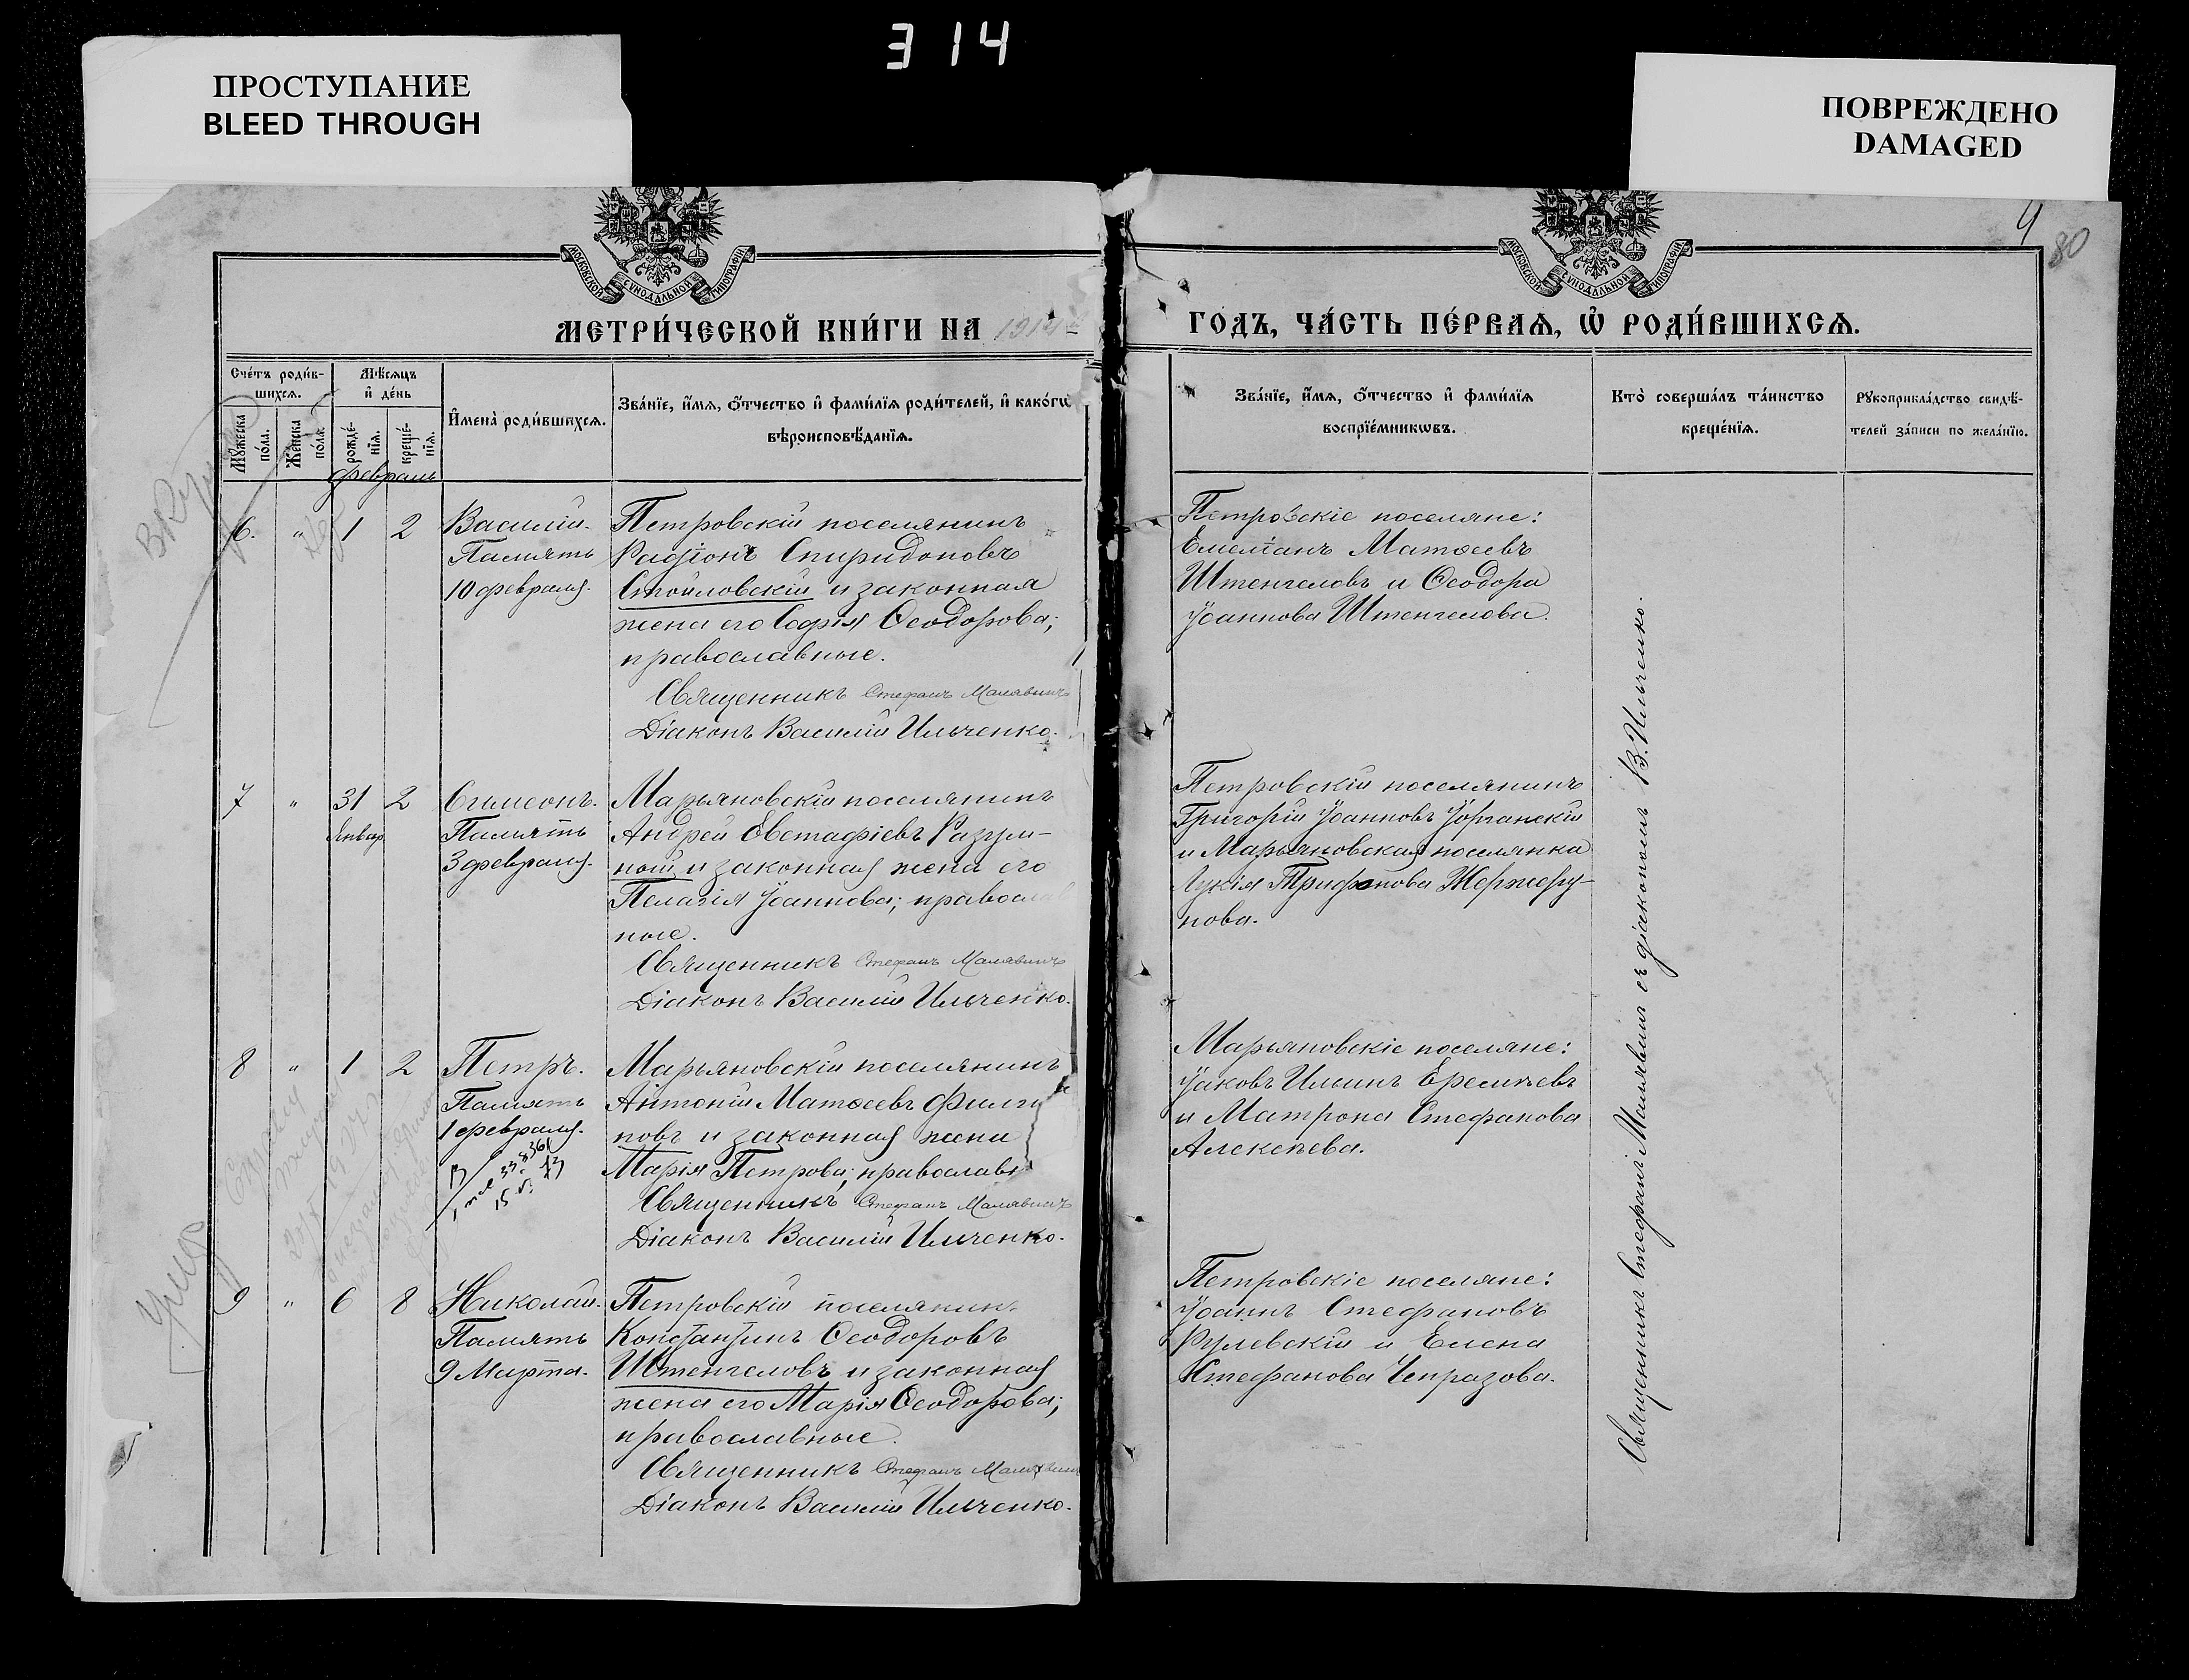 314
ПРОСТУПАНИЕ
BLEED THROUGH
ПОВРЕЖДЕНО
DAMAGED
4
80
МОСКОВСКОЙ СѴНОДАЛЬНОЙ ТИПОГРАФІИ
МОСКОВСКОЙ СѴНОДАЛЬНОЙ ТИПОГРАФІИ
МЕТРИ́ЧЕСКОЙ КНИ́ГИ НА 1914
ГОДЪ, ЧА́СТЬ ПЕ́РВАѦ, Ѡ҆ РОДИ́ВШИХСѦ.
Сче́тъ роди́в-
шихсѧ.
Мꙋ́жеска по́ла.
Же́нска по́ла.
Мѣ́сѧцъ
и҆ де́нь
рожде́-
нїѧ.
креще́-
нїѧ.
И҆мена̀ роди́вшихсѧ.
Зва́нїе, и҆́мѧ, ѻ҆́тчество и҆ фами́лїѧ роди́телей, и҆ како́гѡ
вѣроисповѣ́данїѧ.
Зва́нїе, и҆́мѧ, ѻ҆́тчество и҆ фами́лїѧ
воспрїе́мникѡвъ.
Кто̀ соверша́лъ та́инство
креще́нїѧ.
Рꙋкоприкла́дство свидѣ́-
телей за́писи по жела́нїю.
февраль
6. " 1 2
Василій.
Память
10 февраля.
Петровскій поселянинъ
Радіонъ Спиридоновъ
Стоиловскій и законная
жена его Софія Ѳеодорова;
православные.
Священникъ Стефанъ Малявинъ
Діаконъ Василій Ильченко.
Петровскіе поселяне:
Емеліанъ Матѳеевъ
Штенгеловъ и Ѳеодора
Іоаннова Штенгелова.
7 " 31 2
Январ.
Сѵмеонъ.
Память
3 февраля.
Марьяновскій поселянинъ
Андрей Евстафіевъ Разум-
ный и законная жена его
Пелагія Іоаннова; православ
ные.
Священникъ Стефанъ Малявинъ
Діаконъ Василій Ильченко.
Петровскій поселянинъ
Григорій Іоанновъ Іорганскій
и Марьяновская поселянка
Лукія Трифонова Жержеру-
нова.
8 " 1 2
Петръ.
Память
1 февраля.
Марьяновскій поселянинъ
Антоній Матѳеевъ Филип
повъ и законная жена
Марія Петрова; православн
Священникъ Стефанъ Малявинъ
Діаконъ Василій Ильченко.
Марьяновскіе поселяне:
Іаковъ Илиинъ Еремиевъ
и Матрона Стефанова
Алексѣева.
9 " 6 8
Николай.
Память
9 Марта.
Петровскій поселянинъ
Константинъ Ѳеодоровъ
Штенгеловъ и законная
жена его Марія Ѳеодорова;
православные.
Священникъ Стефанъ Малявинъ
Діаконъ Василій Ильченко.
Петровскіе поселяне:
Іоаннъ Стефановъ
Рулевскій и Елена
Стефанова Чепразова.
Священникъ Стефанъ Малявинъ съ діакономъ В. Ильченко.